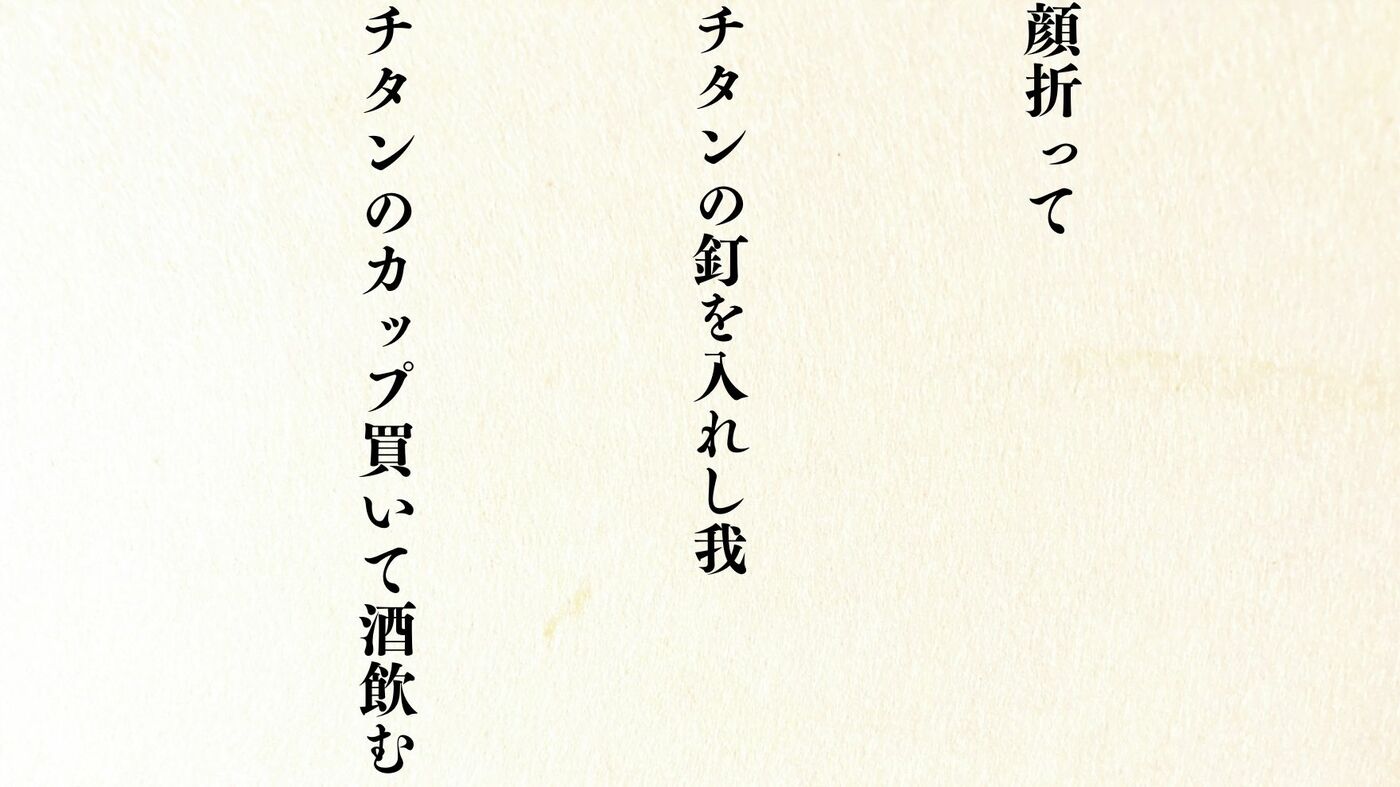 顔折って
チタンの釘を入れし我
チタンのカップ買いて酒飲む